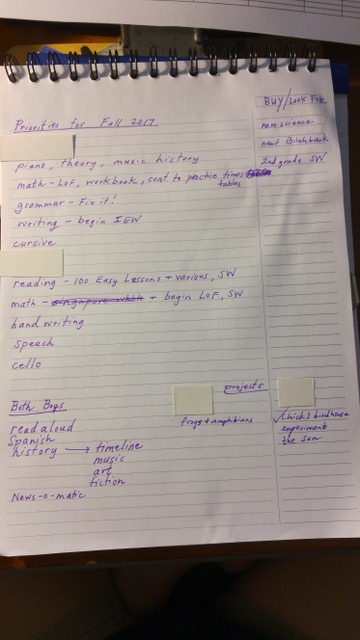 Priorities for Fall 2017
piano, theory, music history
math - LoF, workbook, cont. to practice times
tables
grammar - Fix it!
writing - begin IEW
cursive
reading - 100 Easy Lessons + various, SW
math - singapore wkbk + begin LoF, SW
handwriting
Speech
cello
BUY/Look For
new science
next Birchbark
2nd grade SW
projects
frogs + amphibians
✓ birdhouse
experiments
the sun
Both Boys
read aloud
Spanish
history → timeline
music
art
fiction
News-o-matic